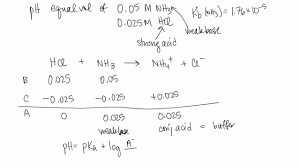 pH equal vol of 0.05 M NH₃ Kb (NH₃) = 1.76 × 10⁻⁵
0.025 M HCl weak base
strong acid
HCl + NH₃ → NH₄⁺ + Cl⁻
B 0.025 0.05
C -0.025 -0.025 +0.025
A 0 0.025 0.025
weak base conj. acid = buffer
pH = pKa + log A⁻